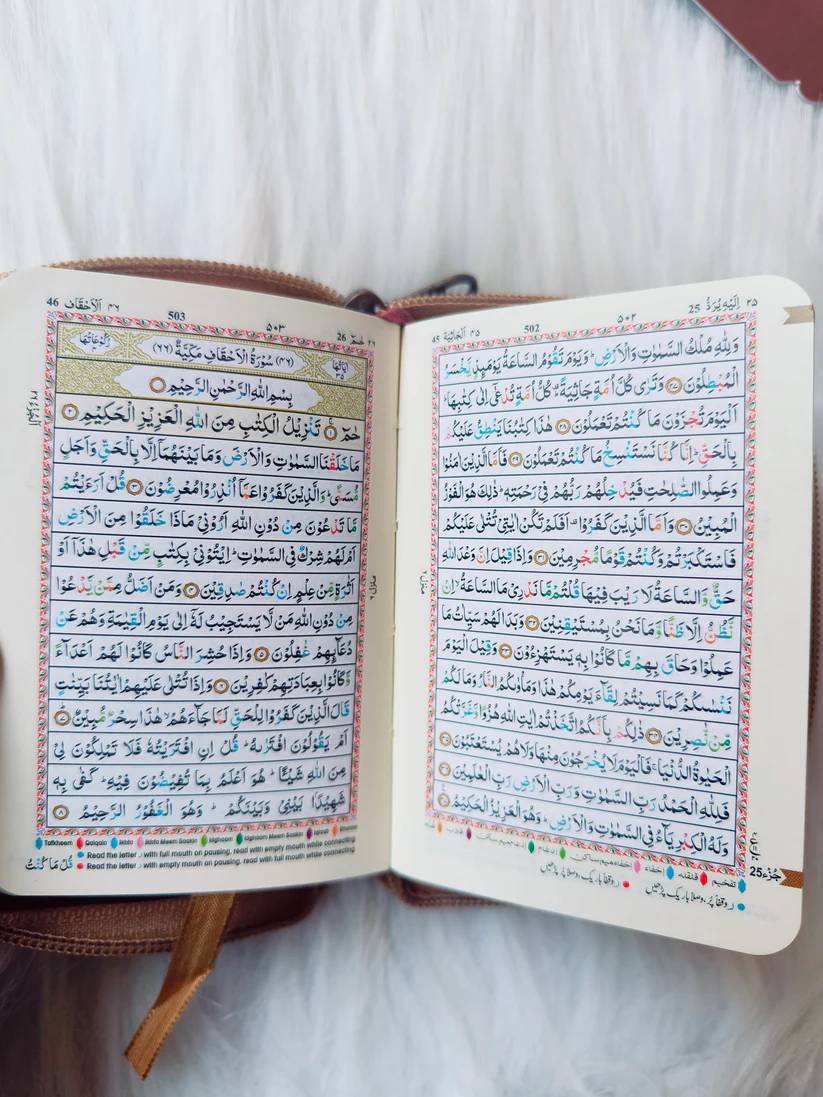 ٢٥ اِلَيْهِ يُرَدُّ 25
٥٠٢ 502
٤٥ اَلْجَاثِيَة 45
وَلِلّٰهِ مُلْكُ السَّمٰوٰتِ وَالْاَرْضِ ؕ وَيَوْمَ تَقُوْمُ السَّاعَةُ يَوْمَئِذٍ يَّخْسَرُ
الْمُبْطِلُوْنَ ﴿٢٧﴾ وَتَرٰى كُلَّ اُمَّةٍ جَاثِيَةً ؕ كُلُّ اُمَّةٍ تُدْعٰۤى اِلٰى كِتٰبِهَا ؕ
اَلْيَوْمَ تُجْزَوْنَ مَا كُنْتُمْ تَعْمَلُوْنَ ﴿٢٨﴾ هٰذَا كِتٰبُنَا يَنْطِقُ عَلَيْكُمْ
بِالْحَقِّ ؕ اِنَّا كُنَّا نَسْتَنْسِخُ مَا كُنْتُمْ تَعْمَلُوْنَ ﴿٢٩﴾ فَاَمَّا الَّذِيْنَ اٰمَنُوْا
وَعَمِلُوا الصّٰلِحٰتِ فَيُدْخِلُهُمْ رَبُّهُمْ فِيْ رَحْمَتِهٖ ؕ ذٰلِكَ هُوَ الْفَوْزُ
الْمُبِيْنُ ﴿٣٠﴾ وَاَمَّا الَّذِيْنَ كَفَرُوْا ۟ اَفَلَمْ تَكُنْ اٰيٰتِيْ تُتْلٰى عَلَيْكُمْ
فَاسْتَكْبَرْتُمْ وَكُنْتُمْ قَوْمًا مُّجْرِمِيْنَ ﴿٣١﴾ وَاِذَا قِيْلَ اِنَّ وَعْدَ اللّٰهِ
حَقٌّ وَّالسَّاعَةُ لَا رَيْبَ فِيْهَا قُلْتُمْ مَّا نَدْرِيْ مَا السَّاعَةُ ۙ اِنْ
نَّظُنُّ اِلَّا ظَنًّا وَّمَا نَحْنُ بِمُسْتَيْقِنِيْنَ ﴿٣٢﴾ وَبَدَا لَهُمْ سَيِّاٰتُ مَا
عَمِلُوْا وَحَاقَ بِهِمْ مَّا كَانُوْا بِهٖ يَسْتَهْزِءُوْنَ ﴿٣٣﴾ وَقِيْلَ الْيَوْمَ
نَنْسٰىكُمْ كَمَا نَسِيْتُمْ لِقَآءَ يَوْمِكُمْ هٰذَا وَمَاْوٰىكُمُ النَّارُ وَمَا لَكُمْ
مِّنْ نّٰصِرِيْنَ ﴿٣٤﴾ ذٰلِكُمْ بِاَنَّكُمُ اتَّخَذْتُمْ اٰيٰتِ اللّٰهِ هُزُوًا وَّغَرَّتْكُمُ
الْحَيٰوةُ الدُّنْيَا ۚ فَالْيَوْمَ لَا يُخْرَجُوْنَ مِنْهَا وَلَا هُمْ يُسْتَعْتَبُوْنَ ﴿٣٥﴾
فَلِلّٰهِ الْحَمْدُ رَبِّ السَّمٰوٰتِ وَرَبِّ الْاَرْضِ رَبِّ الْعٰلَمِيْنَ ﴿٣٦﴾
وَلَهُ الْكِبْرِيَآءُ فِي السَّمٰوٰتِ وَالْاَرْضِ ۪ وَهُوَ الْعَزِيْزُ الْحَكِيْمُ ﴿٣٧﴾
منزل ٦
جُزْء 25
تفخيم قلقلہ اخفاء اخفاء میم ساکن ادغام ادغام میم ساکن اقلاب
ر وقفاً پُر، وصلاً باریک پڑھیں ر وقفاً باریک، وصلاً پُر پڑھیں
46 اَلْاَحْقَاف ٤٦
503 ٥٠٣
26 حٰمٓ ٢٦
اٰيَاتُهَا ٣٥ (٤٦) سُوْرَةُ الْاَحْقَافِ مَكِّيَّةٌ (٦٦) رُكُوْعَاتُهَا ٤
بِسْمِ اللّٰهِ الرَّحْمٰنِ الرَّحِيْمِ
حٰمٓ ﴿١﴾ تَنْزِيْلُ الْكِتٰبِ مِنَ اللّٰهِ الْعَزِيْزِ الْحَكِيْمِ ﴿٢﴾
مَا خَلَقْنَا السَّمٰوٰتِ وَالْاَرْضَ وَمَا بَيْنَهُمَاۤ اِلَّا بِالْحَقِّ وَاَجَلٍ
مُّسَمًّى ؕ وَالَّذِيْنَ كَفَرُوْا عَمَّاۤ اُنْذِرُوْا مُعْرِضُوْنَ ﴿٣﴾ قُلْ اَرَءَيْتُمْ
مَّا تَدْعُوْنَ مِنْ دُوْنِ اللّٰهِ اَرُوْنِيْ مَاذَا خَلَقُوْا مِنَ الْاَرْضِ
اَمْ لَهُمْ شِرْكٌ فِي السَّمٰوٰتِ ؕ اِيْتُوْنِيْ بِكِتٰبٍ مِّنْ قَبْلِ هٰذَاۤ اَوْ
اَثٰرَةٍ مِّنْ عِلْمٍ اِنْ كُنْتُمْ صٰدِقِيْنَ ﴿٤﴾ وَمَنْ اَضَلُّ مِمَّنْ يَّدْعُوْا
مِنْ دُوْنِ اللّٰهِ مَنْ لَّا يَسْتَجِيْبُ لَهٗۤ اِلٰى يَوْمِ الْقِيٰمَةِ وَهُمْ عَنْ
دُعَآئِهِمْ غٰفِلُوْنَ ﴿٥﴾ وَاِذَا حُشِرَ النَّاسُ كَانُوْا لَهُمْ اَعْدَآءً
وَّكَانُوْا بِعِبَادَتِهِمْ كٰفِرِيْنَ ﴿٦﴾ وَاِذَا تُتْلٰى عَلَيْهِمْ اٰيٰتُنَا بَيِّنٰتٍ
قَالَ الَّذِيْنَ كَفَرُوْا لِلْحَقِّ لَمَّا جَآءَهُمْ ۙ هٰذَا سِحْرٌ مُّبِيْنٌ ﴿٧﴾
اَمْ يَقُوْلُوْنَ افْتَرٰىهُ ؕ قُلْ اِنِ افْتَرَيْتُهٗ فَلَا تَمْلِكُوْنَ لِيْ
مِنَ اللّٰهِ شَيْـًٔا ؕ هُوَ اَعْلَمُ بِمَا تُفِيْضُوْنَ فِيْهِ ؕ كَفٰى بِهٖ
شَهِيْدًۢا بَيْنِيْ وَبَيْنَكُمْ ؕ وَهُوَ الْغَفُوْرُ الرَّحِيْمُ ﴿٨﴾
منزل ٦
Tafkheem Qalqala Ikhfa Ikhfa Meem Saakin Idghaam Idghaam Meem Saakin Iqlaab Ghunna
Read the letter ر with full mouth on pausing, read with empty mouth while connecting
Read the letter ر with empty mouth on pausing, read with full mouth while connecting
قُلْ مَا كُنْتُ